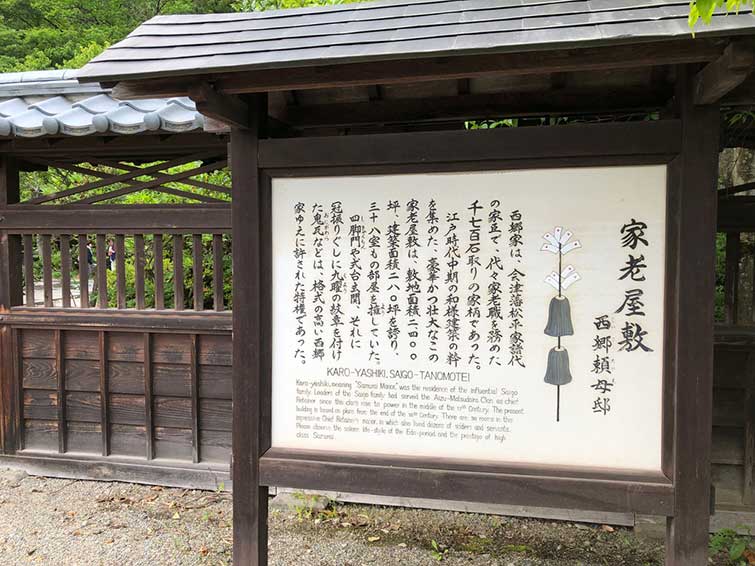 家老屋敷
西郷頼母邸
西郷家は、会津藩松平家譜代
の家臣で、代々家老職を務めた
千七百石取りの家柄であった。
江戸時代中期の和様建築の粋
を集めた、豪華かつ壮大なこの
家老屋敷は、敷地面積二四〇〇
坪、建築面積二八〇坪を誇り、
三十八室もの部屋を擁していた。
四脚門や式台玄関、それに
冠振りぐしに九曜の紋章を付け
た鬼瓦などは、格式の高い西郷
家ゆえに許された特権であった。
KARO-YASHIKI, SAIGO-TANOMOTEI
Karo-yashiki, meaning "Samurai Manor," was the residence of the influential Saigo
family. Leaders of the Saigo family had served the Aizu-Matsudaira Clan as chief
Retainer since this clan's rise to power in the middle of the 17th Century. The present
building is based on plans from the end of the 18th Century. There are 38 rooms in the
impressive Chief Retainer's manor, in which also lived dozens of soldiers and servants.
Please observe the solemn life-style of the Edo-period and the prestige of high
class Samurai.